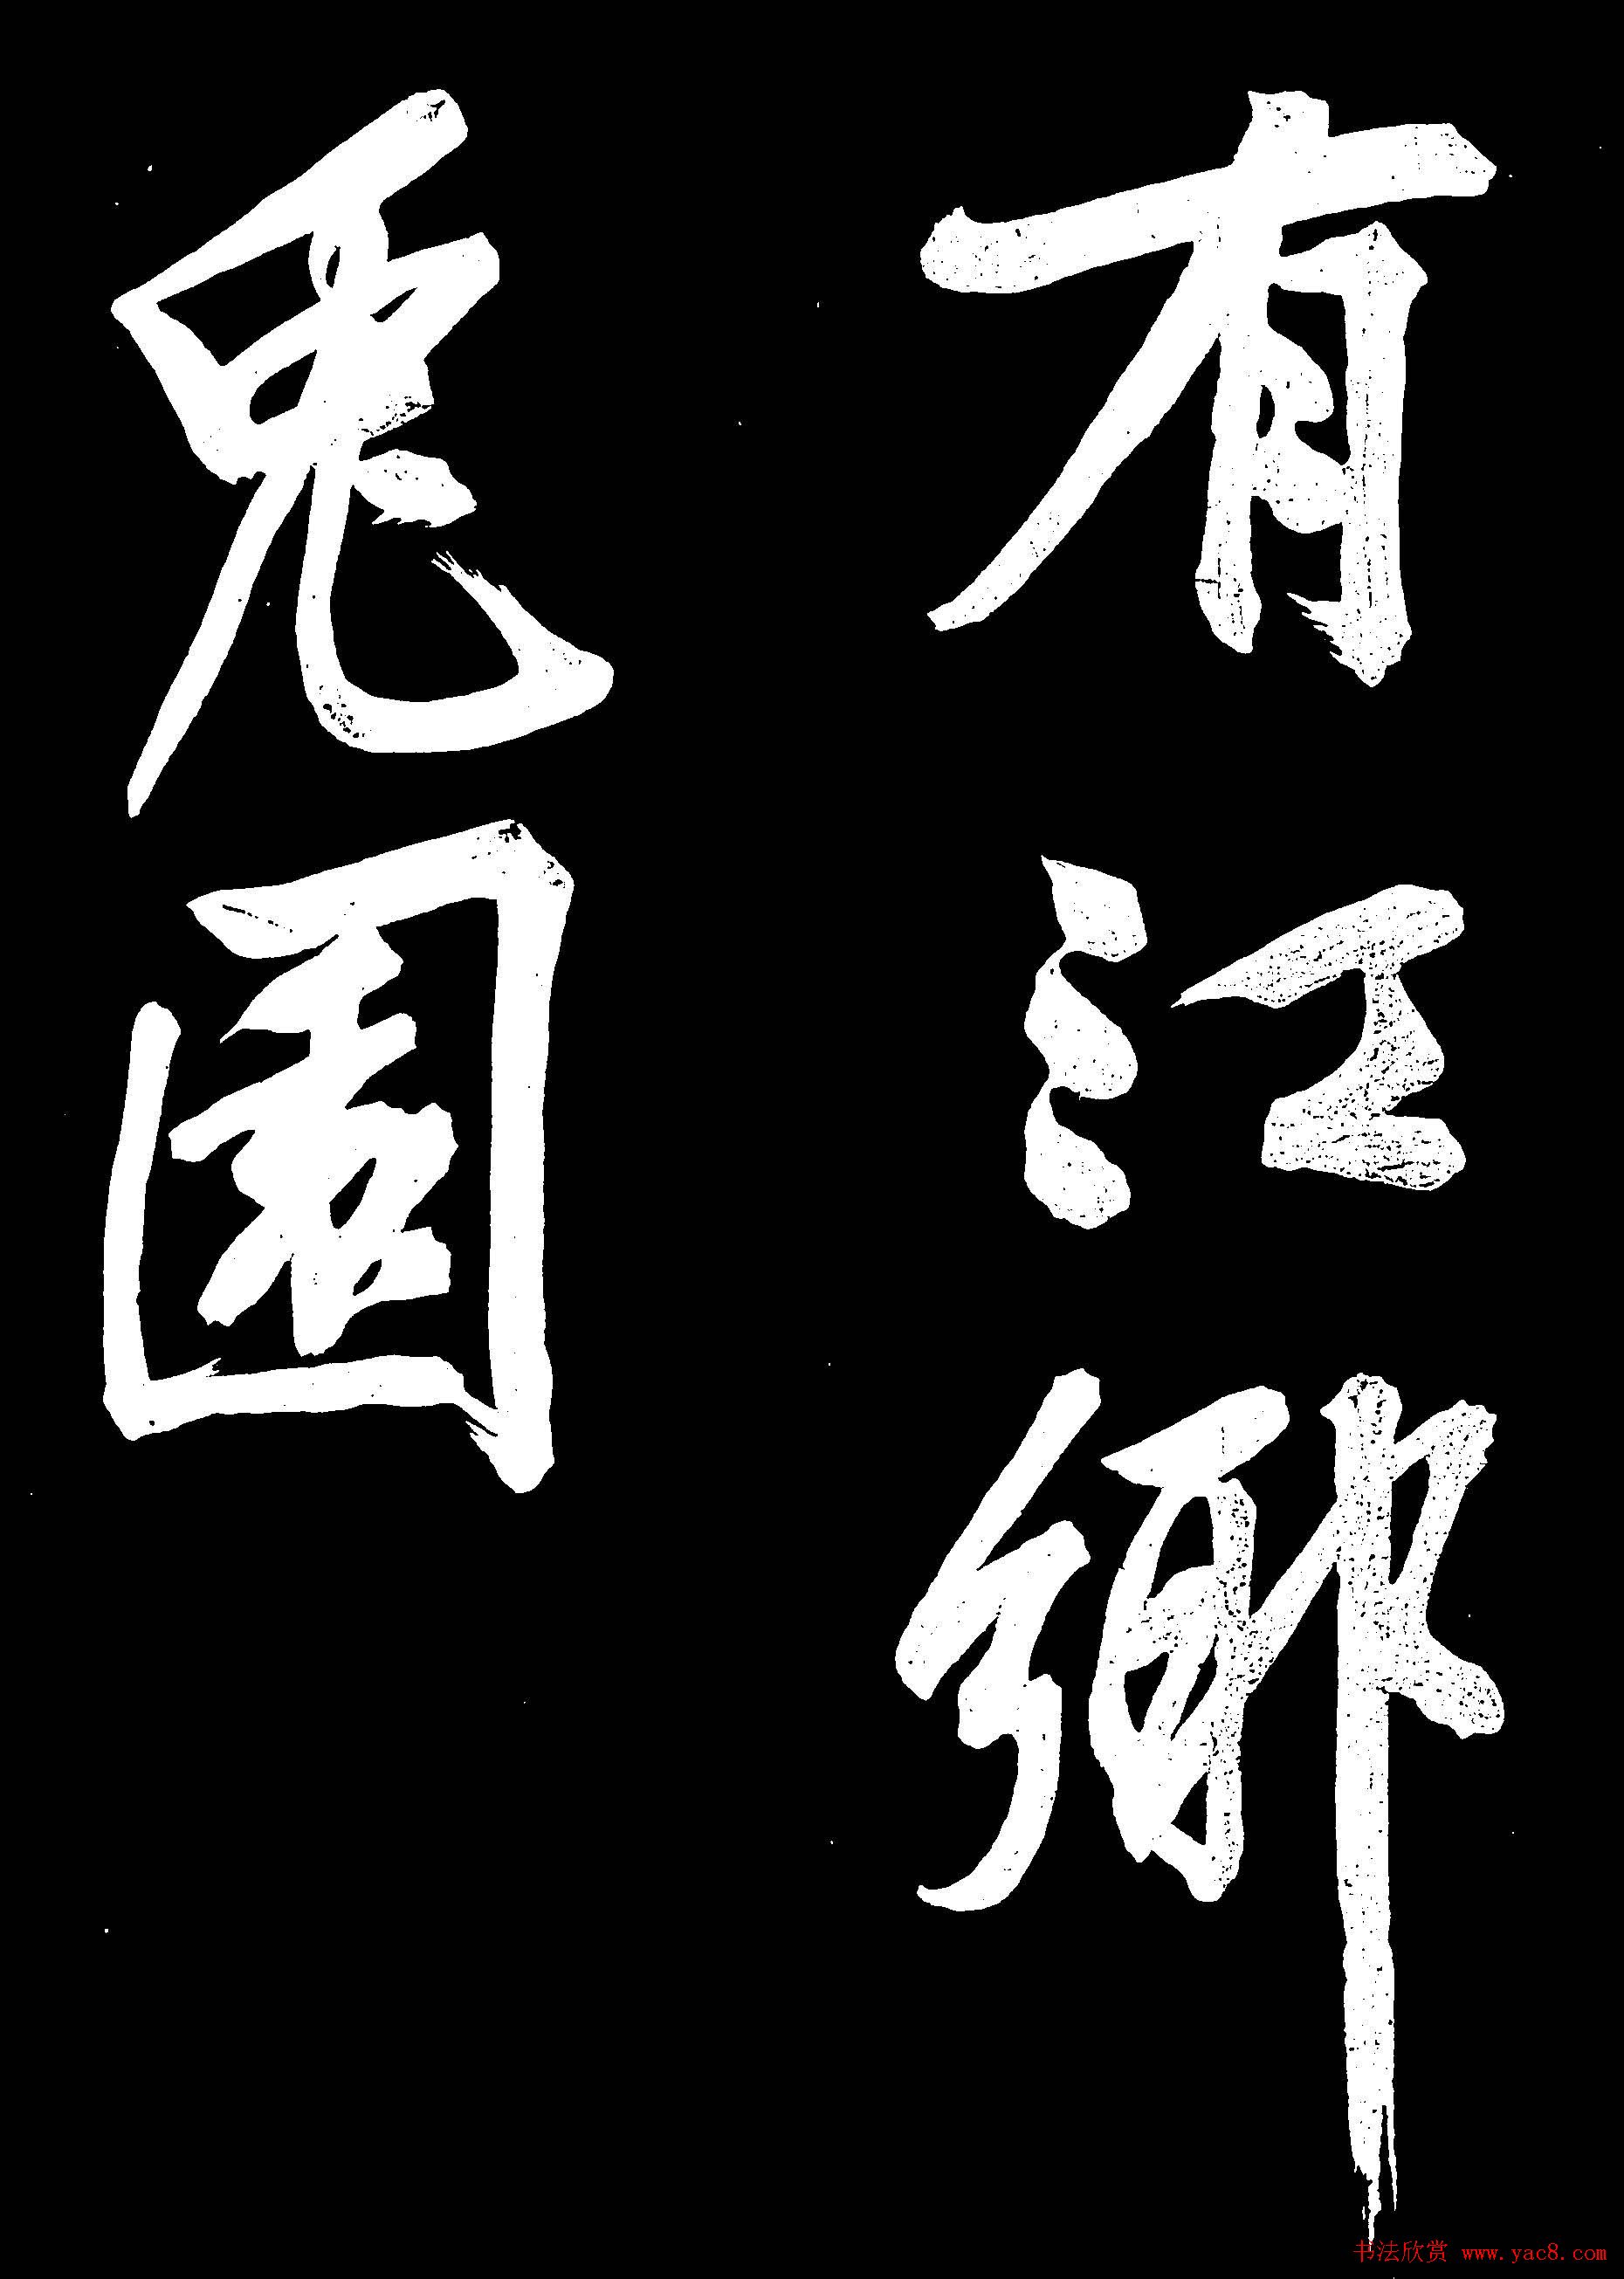 有江鄉
兔園
书法欣赏 www.yac8.com